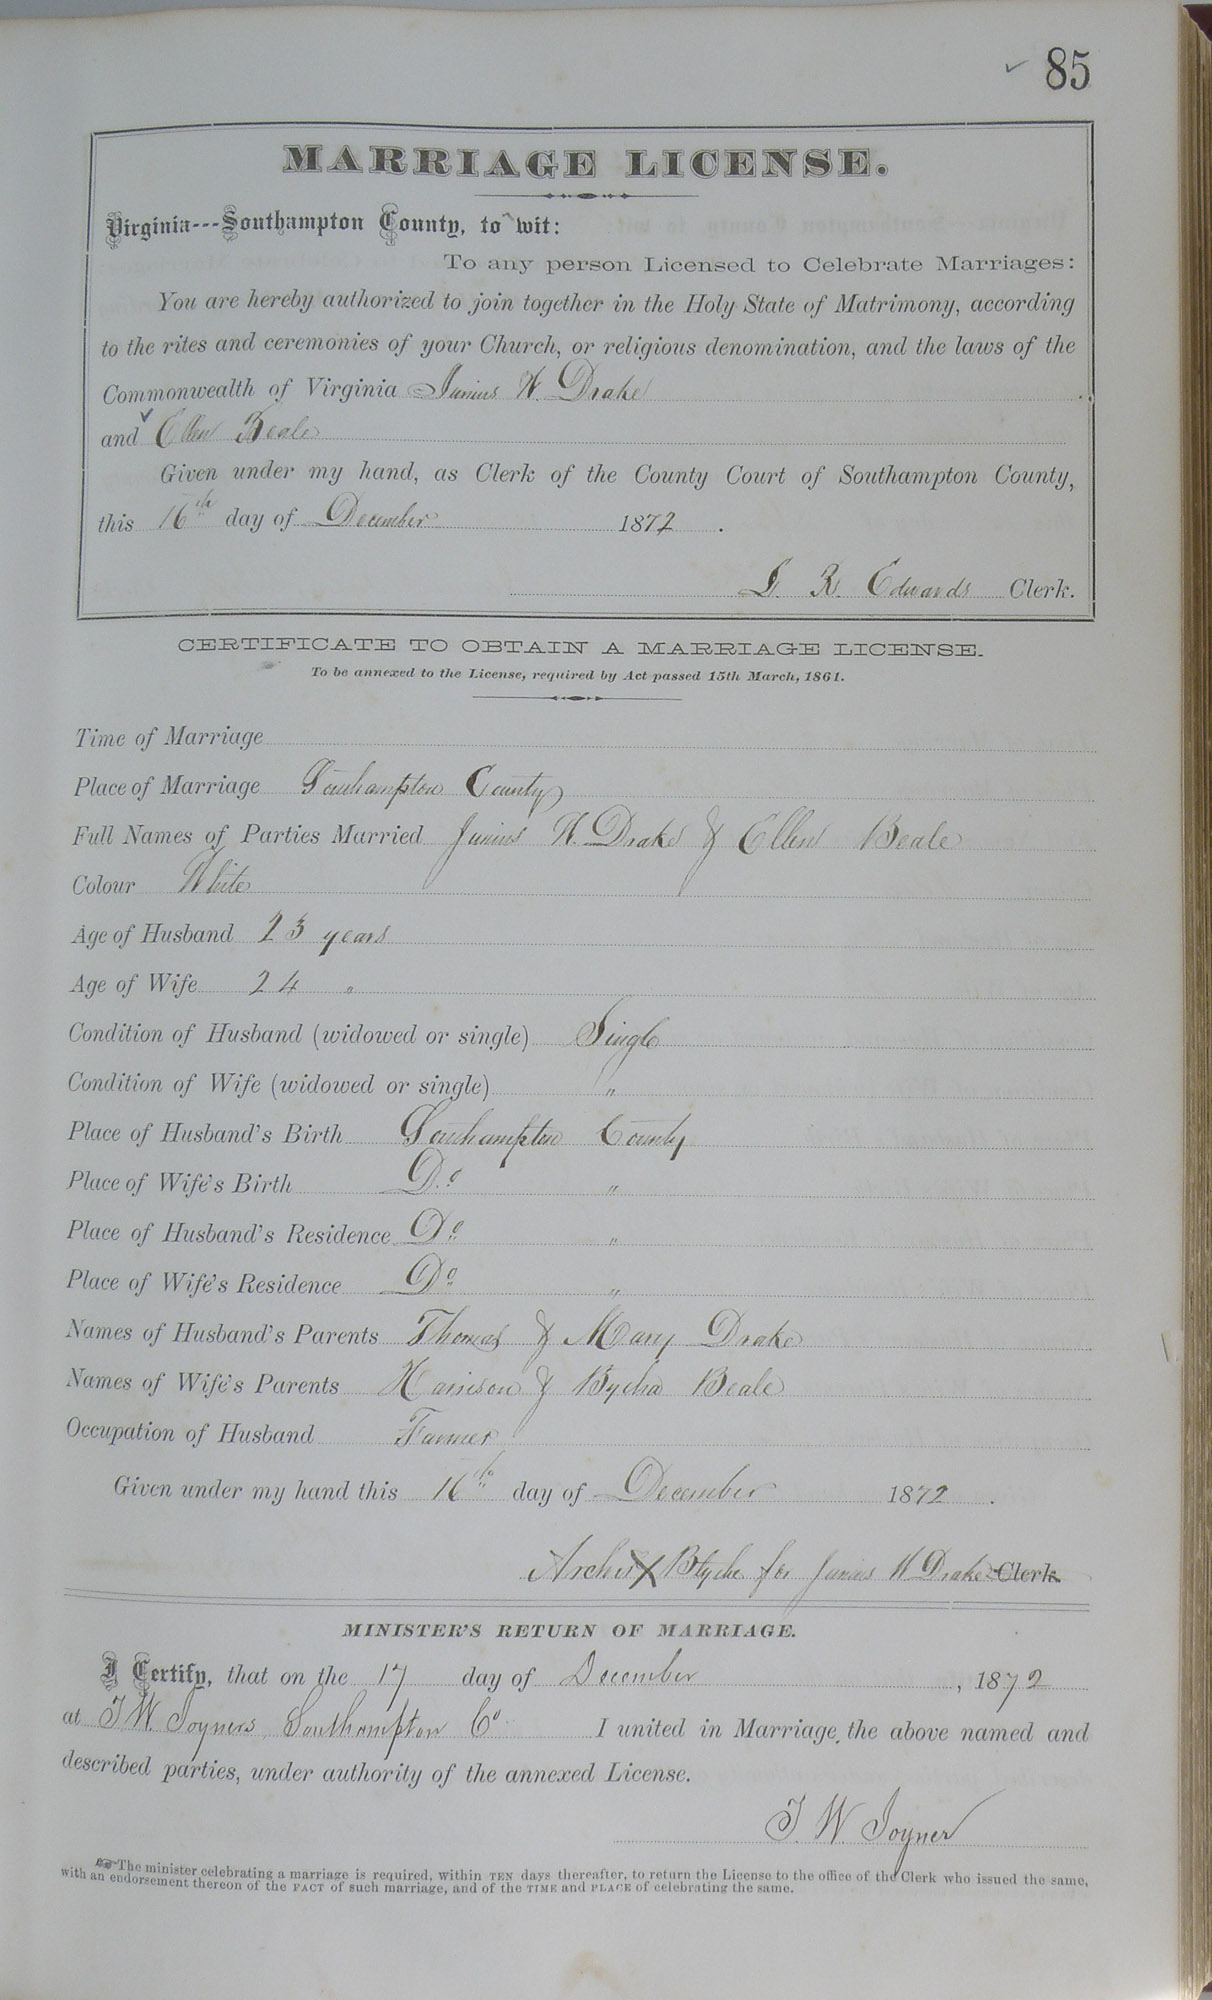 ✓ 85
MARRIAGE LICENSE.
Virginia---Southampton County, to wit:
To any person Licensed to Celebrate Marriages:
You are hereby authorized to join together in the Holy State of Matrimony, according
to the rites and ceremonies of your Church, or religious denomination, and the laws of the
Commonwealth of Virginia Junius W. Drake
and Ellen Beale
Given under my hand, as Clerk of the County Court of Southampton County,
this 16th day of December 1872.
L. R. Edwards Clerk.
CERTIFICATE TO OBTAIN A MARRIAGE LICENSE.
To be annexed to the License, required by Act passed 15th March, 1861.
Time of Marriage
Place of Marriage Southampton County
Full Names of Parties Married Junius W. Drake & Ellen Beale
Colour White
Age of Husband 23 years
Age of Wife 24 "
Condition of Husband (widowed or single) Single
Condition of Wife (widowed or single) "
Place of Husband's Birth Southampton County
Place of Wife's Birth Do "
Place of Husband's Residence Do "
Place of Wife's Residence Do "
Names of Husband's Parents Thomas & Mary Drake
Names of Wife's Parents Harrison & Beale
Occupation of Husband Farmer
Given under my hand this 16th day of December 1872.
X for Junius W Drake Clerk
MINISTER'S RETURN OF MARRIAGE.
I Certify, that on the 17 day of December, 1872
at J W. Joyners Southampton Co I united in Marriage the above named and
described parties, under authority of the annexed License.
J. W. Joyner
☞ The minister celebrating a marriage is required, within TEN days thereafter, to return the License to the office of the Clerk who issued the same,
with an endorsement thereon of the FACT of such marriage, and of the TIME and PLACE of celebrating the same.